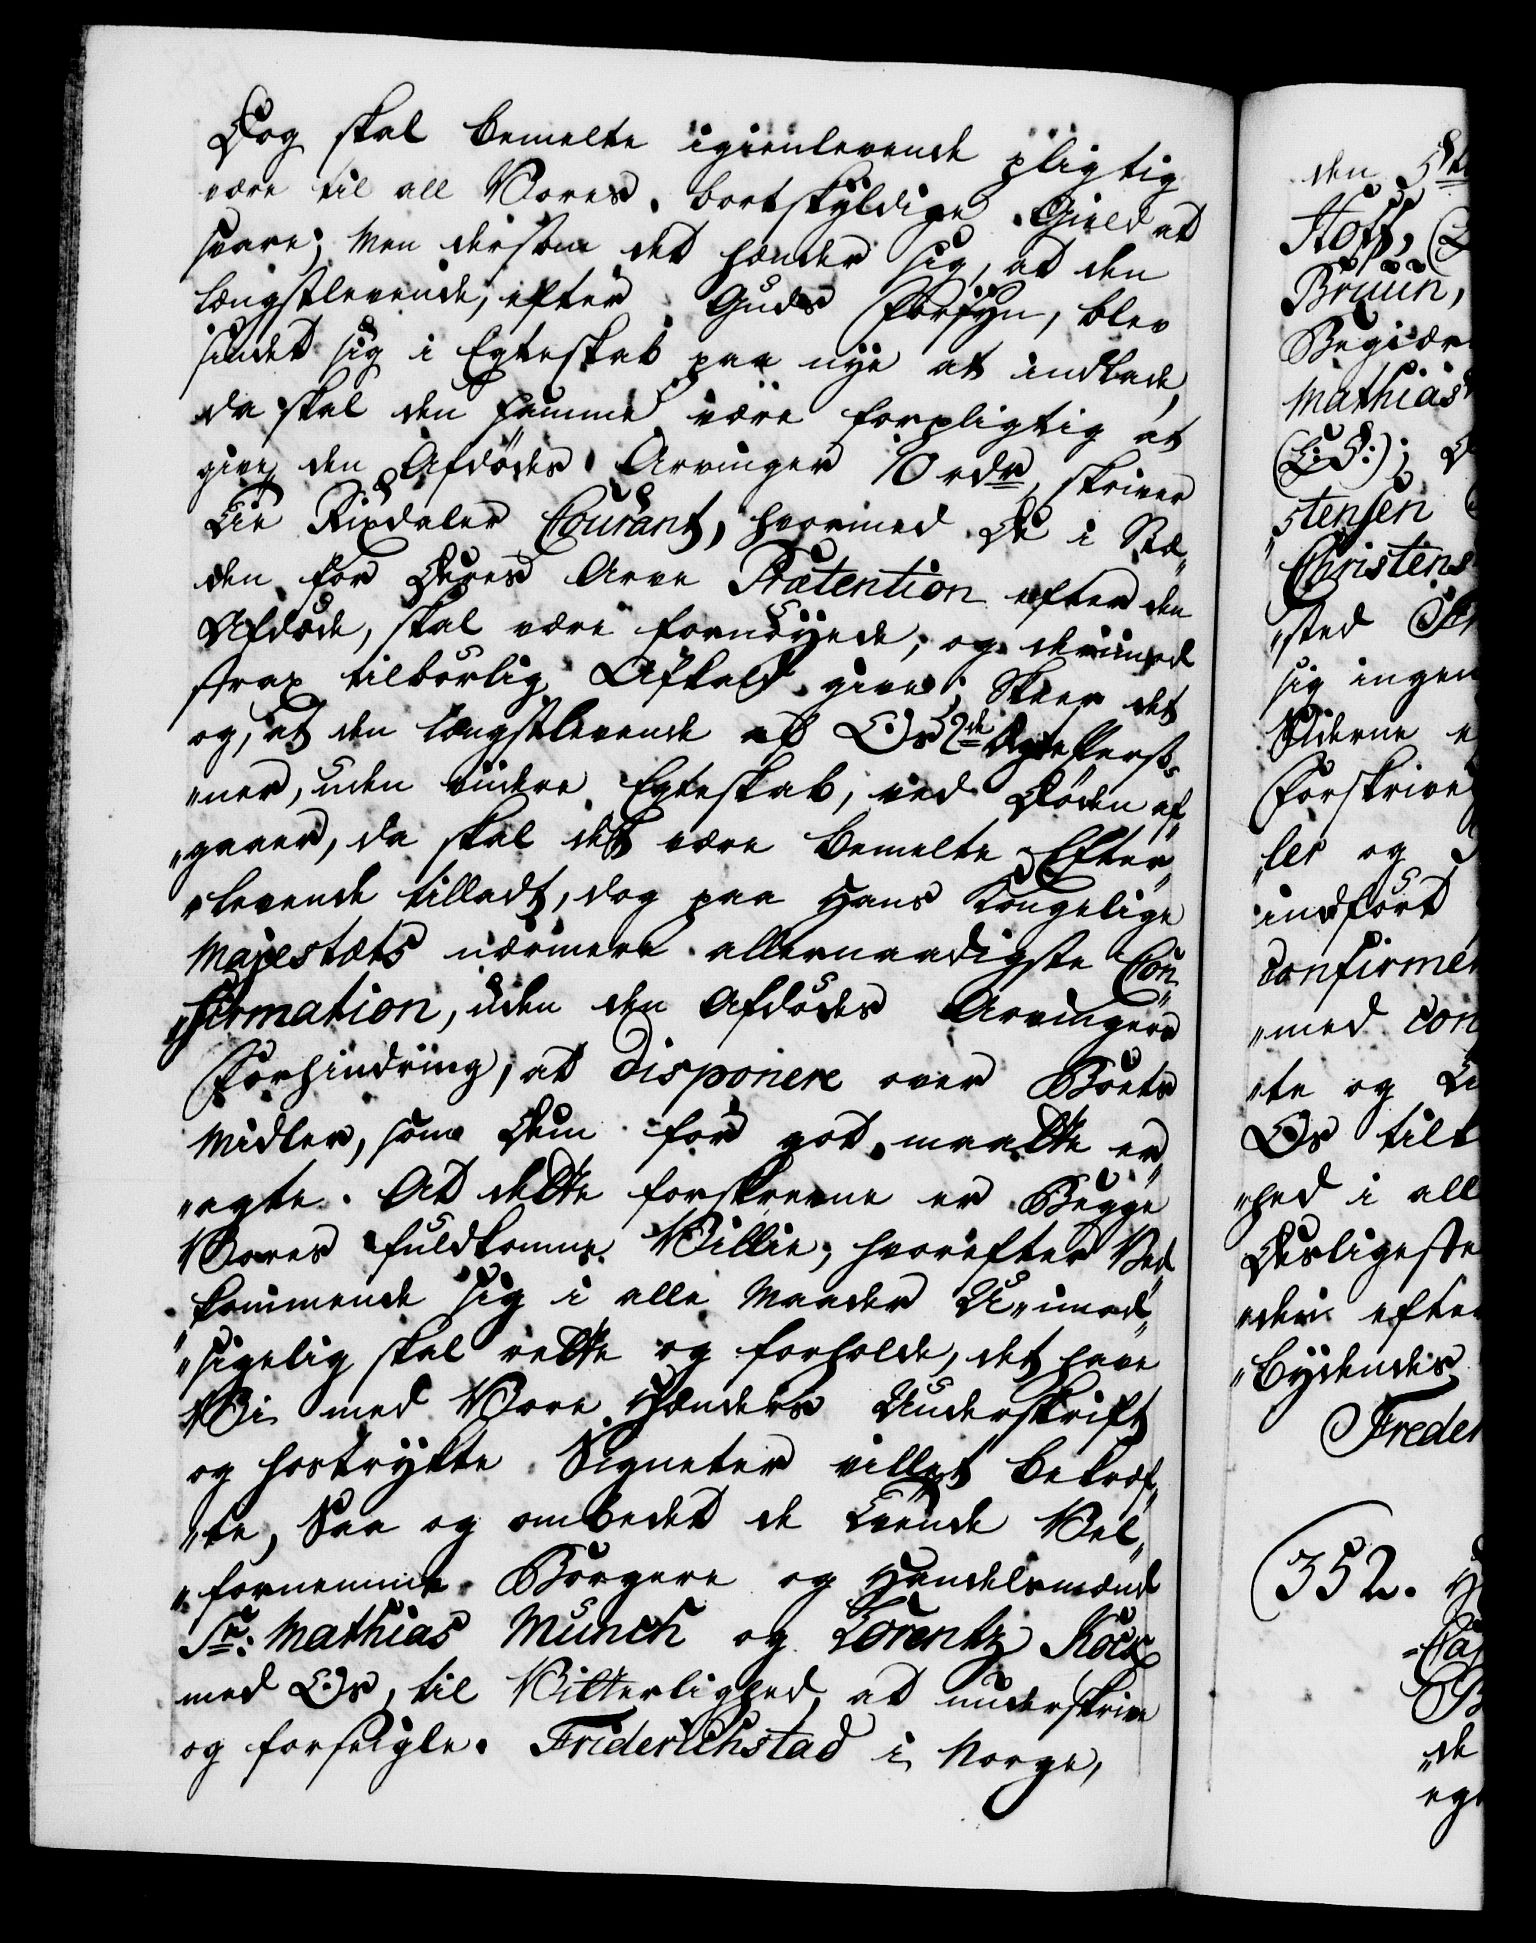 Dog skal bemelte igienlevende pligtig
være til all Vores bortskyldige Gield at
svare; Men dersom det hænder sig, at den
længstlevende, efter Guds Forsyn, blev
sindet sig i Egteskab paa nye at indlade,
da skal den samme være forpligtig at
give den Afdødes Arvinger 10 rdr, skriver
Tie Rixdaler Courant, hvormed De i Stæ„
den for Deres Arve Prætention efter den
Afdøde, skal være fornøyede, og derimod
strax tilbørlig Afkald give; Skeer det
og, at den længstlevende af Os 2de Ægte Perso„
„ner, uden videre Egteskab, ved Døden af„
„gaaer, da skal det være bemelte Efter„
„levende tilladt, dog paa Hans Kongelige
Majestæts nærmere allernaadigste Con„
„firmation, uden den Afdødes Arvingers
Forhindring, at disponere over Boets
Midler, som Dem for got maatte er„
„agte. At dette forskrevne er Begge
Vores fuldkomne Villie, hvorefter Ved„
„kommende sig i alle Maader U-imod„
„sigelig skal rette og forholde, det have
Vi med Vore Hænders Underskrift
og hostrykte Signeter villet bekræf„
„te, Saa og ombedet de Tvende Vel„
„fornemme Borgere og Handelsmænd
Sr: Mathias Munch og Lorentz Kock
med Os, til Vitterlighed, at underskrive
og forseigle. Friderichstad i Norge,
den 5te
Hoff,
Bruun,
Begiær
Mathias
(L:S:);
„stensen
Christens
„sted
sig ingen
Siderne
Forskrive
„ler og
indført
confirme
„med con
„te og
Os tilt
„hed i all
Desligeste
„der efter
„bydendes
Freder
352.
„de